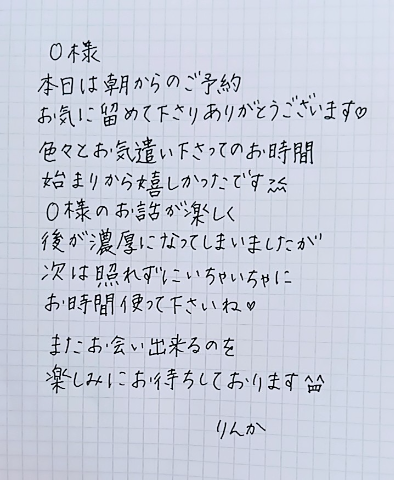 〇様
本日は朝からのご予約
お気に留めて下さりありがとうございます♡
色々とお気遣い下さってのお時間
始まりから嬉しかったです
〇様のお話が楽しく
後が濃厚になってしまいましたが
次は照れずにいちゃいちゃに
お時間使って下さいね♡
またお会い出来るのを
楽しみにお待ちしております
りんか